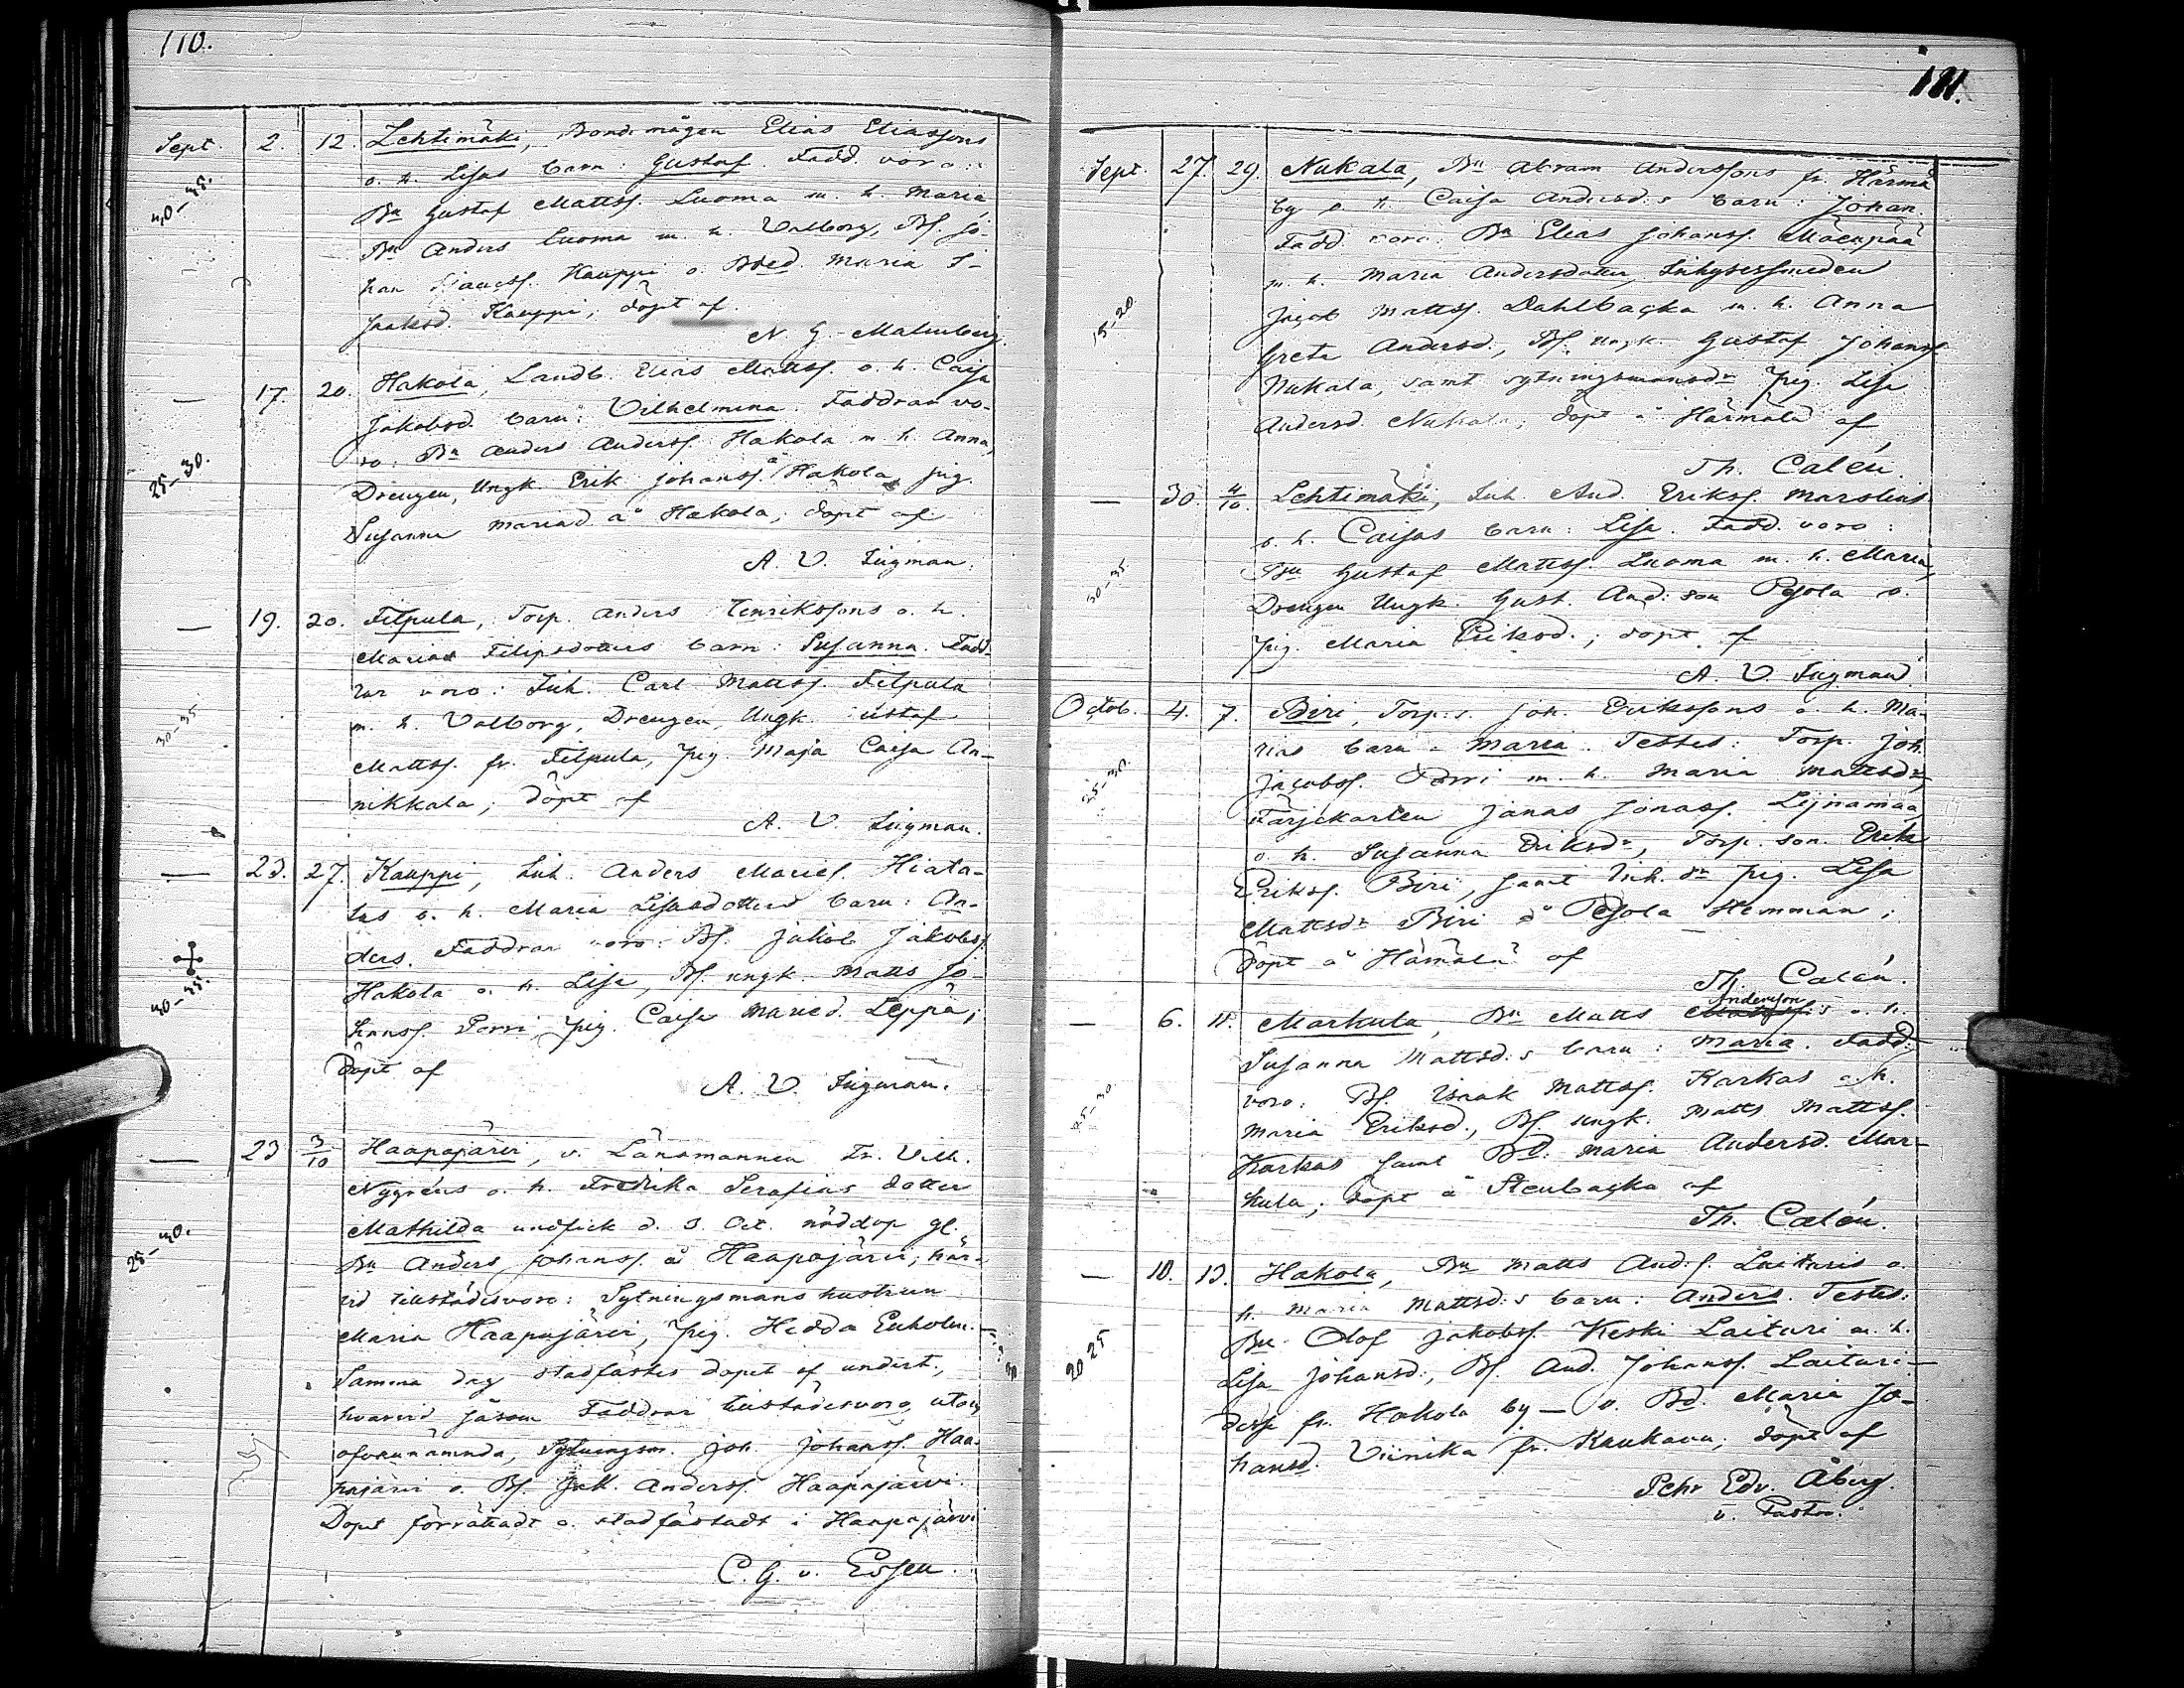 110.
Sept. 2. 12. Lehtimäki, Bondemågen Elias Eliassons
o. h. Lisas barn: Gustaf. Fadd. voro:
Bn Gustaf Mattss. Luoma m. h. Maria,
Bn Anders Luoma m. h. Valborg, Bs. Jo-
han Kauppi o. Bd. Maria I-
saksd. Kauppi; döpt af
N. G. Malmberg.
40-45.
— 17. 20. Hakola, Landb. Elias Mattss. o. h. Caisa
Jakobsd. barn: Vilhelmina. Faddrar vo-
ro: Bn Anders Anderss. Hakola m. h. Anna,
Drengen, Ungk. Erik Johanss. å Hakola, pig.
Susanna Mariasd. å Hakola; döpt af
A. V. Ingman.
25-30.
— 19. 20. Filpula, Torp. Anders Henrikssons o. h.
Marias Filipsdotters barn: Susanna. Fadd-
rar voro: Inh. Carl Mattss. Filpula
m. h. Valborg, Drengen, Ungk. Gustaf
Mattss. fr. Filpula, Pig. Maja Caisa An-
nikkala; döpt af
A. V. Ingman.
30-35
— 23. 27. Kauppi, Inh. Anders Maries. Hiata-
las o. h. Maria Lisasdotters barn: An-
ders. Faddrar voro: Bs. Jakob Jakobss.
Hakola o. h. Lisa, Bs. ungk. Matts Jo-
hanss. Porri, pig. Caisa Maried. Leppä;
Döpt af
A. V. Ingman.
40-45.
— 23 3/10 Haapajärvi, v. Länsmannen Fr. Vilh.
Nygréns o. h. Fredrika Serafias dotter
Mathilda undfick d. 3. Oct. nöddop gl.
Bn Anders Johanss. å Haapajärvi; här-
vid tillstädesvoro: Sytningsmans hustrun
Maria Haapajärvi, Pig. Hedda Enholm.
Samma dag stadfästes dopet af undert.,
hvarvid såsom Faddrar tillstädesvoro, utom
ofvannämnda, Sytningsm. Joh. Johanss. Haa-
pajärvi o. Bs. Jak. Anderss. Haapajärvi.
Dopet förrättadt o. stadfästadt i Haapajärvi
C. G. v. Essen.
25-30.
111.
Sept. 27. 29. Nukala, Bn Abram Anderssons fr. Härmä
by o. h. Caisa Andersd:s barn: Johan.
Fadd. voro: Bn Elias Johanss. Mäenpää
m. h. Maria Andersdotter, Inhysessmeden
Jacob Mattss. Dahlbacka m. h. Anna
Greta Andersd., Bs. ungk. Gustaf Johanss.
Nukala, samt sytningsmansdr pig. Lisa
Andersd. Nukala; döpt å Härmälä af
Th. Calén.
15-20.
— 30. 4/10. Lehtimäki, Inh. And. Erikss. Marslins
o. h. Caisas barn: Lisa. Fadd. voro:
Bn Gustaf Mattss. Luoma m. h. Maria,
Drengen Ungk. Gust. And:son Pesola o.
Pig. Maria Eriksd.; döpt af
A. V. Ingman.
30-35.
Octob. 4. 7. Biri, Torp:s. Joh. Erikssons o. h. Ma-
rias barn: Maria. Testes: Torp. Joh.
Jacobss. Porri m. h. Maria Mattsdr,
Färjekarlen Jonas Jonass. Lijnamaa
o. h. Susanna Eriksdr, Torp. son. Erik
Erikss. Biri, samt Inh. dr pig. Lisa
Mattsdr Biri å Pesola Hemman;
Döpt å Hämälä af
Th. Calén.
25-30.
— 6. 11. Markula, Bn Matts Anderson s o. h.
Susanna Mattsd:s barn: Maria. Fadd:
voro: Bs. Isaak Mattss. Karkas o. h.
Maria Eriksd., Bs. ungk. Matts Mattss.
Karkas samt Bd. Maria Andersd. Mar-
kula; döpt å Stenbacka af
Th. Calén.
25-30
— 10. 13. Hakola, Bn Matts And.s. Laituris o.
h. Maria Mattsd:s barn: Anders. Testes:
Bn Olof Jakobss. Keski Laituri m. h.
Lisa Johansd:, Bs. And. Johanss. Laituri —
desse fr. Hakola by — o. Bd. Maria Jo-
hansd. Viinika fr. Kaukava; döpt af
Pehr Edv. Åberg.
v. Pastor.
20 25